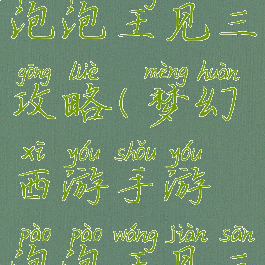 泡泡王见三
gōng lüè mèng huàn
攻略(梦幻
xī yóu shǒu yóu
西游手游
pào pào wáng jiàn sān
泡泡王见三